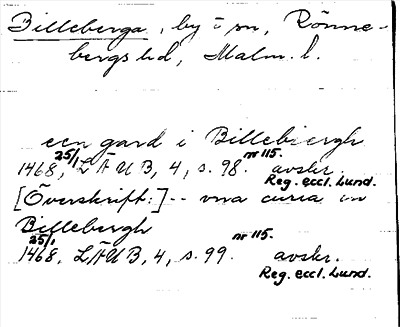 Billeberga, by i sn, Rönne-
bergs hd, Malm. l.
een gard i Billebiergh
1468 25/1, LÄUB, 4, s. 98. nr 115. avskr.
Reg. eccl. Lund.
[Överskrift:] -- vna curia in
Billebergh
1468 25/1, LÄUB, 4, s. 99. nr 115. avskr.
Reg. eccl. Lund.